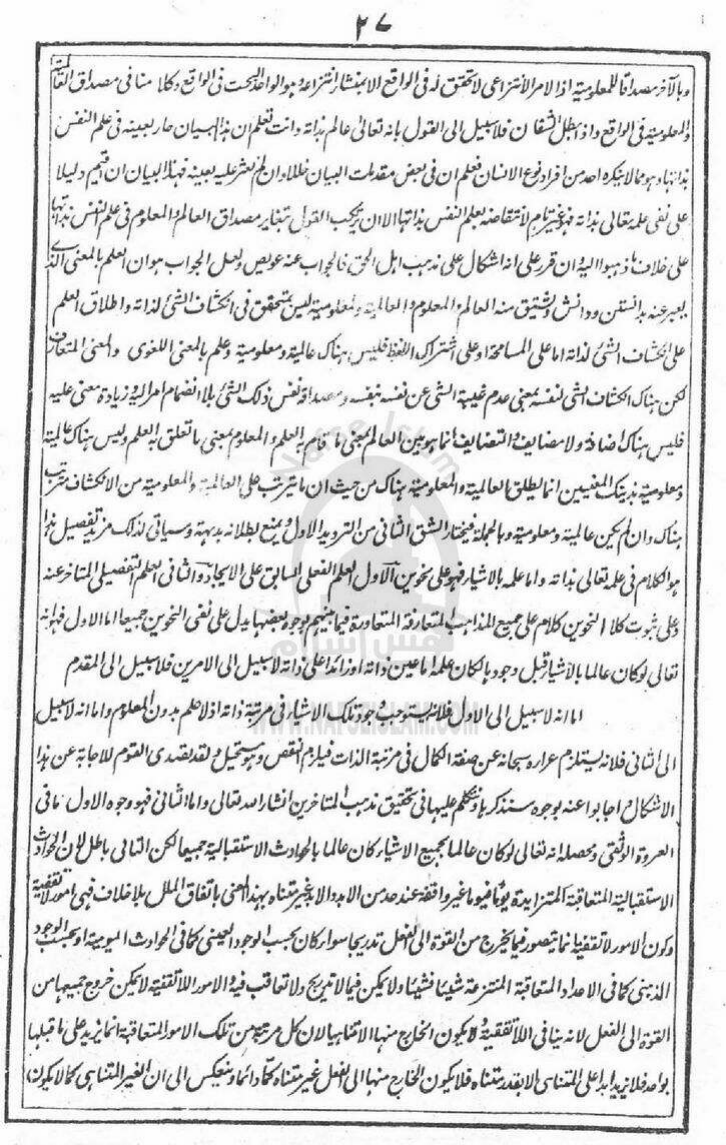 ٢٧
وبالآخر مصداقا للمعلومية اذ الامر الانتزاعى لا تحقق له فى الواقع الا بمنشأ انتزاعه وهو الواحد البحت فى الواقع وكلامنا فى مصداق العالمية
والمعلومية فى الواقع واذ ابطل الشقان فلا سبيل الى القول بانه تعالى عالم بذاته وانت تعلم ان هذا البيان جار بعينه فى علم النفس
بذاتها وهو مما لا ينكره احد من افراد نوع الانسان فعلم ان فى بعض مقدمات البيان خللا وان لم نعثر عليه بعينه فهذا البيان ان اقيم دليلا
على نفى علمه تعالى بذاته فهو غير تام لانتقاضه بعلم النفس بذاتها الا ان يرتكب القول بتغاير مصداق العالم والمعلوم فى علم النفس بذاتها
على خلاف ما ذهبوا اليه وان قرر على انه اشكال على مذهب اهل الحق فالجواب عنه عويص ولعل الجواب هو ان العلم بالمعنى الذى
يعبر عنه بدانستن ودانش ويشتق منه العالم والمعلوم والعالمية والمعلومية ليس بمتحقق فى انكشاف الشئ لذاته واطلاق العلم
على انكشاف الشئ لذاته اما على المسامحة او على اشتراك اللفظ فليس هناك عالمية ومعلومية وعلم بالمعنى اللغوى والمعنى المتعارف
لكن هناك انكشاف الشئ لنفسه بمعنى عدم غيبة الشئ عن نفسه بنفسه ومصداقه نفس ذلك الشئ بلا انضمام امر اليه وزيادة معنى عليه
فليس هناك اضافة ولا مضايف والتضايف انما هو بين العالم بمعنى ما قام به العلم والمعلوم بمعنى ما تعلق به العلم وليس هناك عالمية
ومعلومية بذينك المعنيين انما يطلق العالمية والمعلومية هناك من حيث ان ما يترتب على العالمية والمعلومية من الانكشاف مترتب
هناك وان لم يكن عالمية ومعلومية وبالجملة فيختار الشق الثانى من الترديد الاول ويمنع بطلانه بديهة وسياتى لذلك مزيد تفصيل هذا
هو الكلام فى علمه تعالى بذاته واما علمه بالاشياء فهو على نحوين الاول العلم الفعلى السابق على الايجاد والثانى العلم التفصيلى المتاخر عنه
وعلى ثبوت كلا النحوين كلام على جميع المذاهب المتعارفة المتعاورة فيما بينهم بوجوه بعضها يدل على نفى النحوين جميعا اما الاول فهو انه
تعالى لو كان عالما بالاشياء قبل وجودها لكان علمه اما عين ذاته او زائدا على ذاته لا سبيل الى الامرين فلا سبيل الى المقدم
اما انه لا سبيل الى الاول فلانه يستوجب وجود تلك الاشياء فى مرتبة ذاته اذ لا علم بدون المعلوم واما انه لا سبيل
الى الثانى فلانه يستلزم عراءه سبحانه عن صفة الكمال فى مرتبة الذات فيلزم النقص وهو مستحيل ولقد تصدى القوم للاجابة عن هذا
الاشكال واجابوا عنه بوجوه سنذكرها ونتكلم عليها فى تحقيق مذهب المتاخرين انشاء الله تعالى واما الثانى فهو وجوه الاول ما فى
العروة الوثقى ومحصله انه تعالى لو كان عالما بجميع الاشياء كان عالما بالحوادث الاستقبالية جميعا لكن التالى باطل لان الحوادث
الاستقبالية المتعاقبة المتزايدة يوما فيوما غير واقفة عند حد من الابد والابد غير متناه بهذا المعنى باتفاق الملل بلا خلاف فهى امور لا تقفية
وكون الامور لا تقفية انما يتصور فيما يخرج من القوة الى الفعل تدريجا سواء كان بحسب الوجود العينى كما فى الحوادث اليومية او بحسب الوجود
الذهنى كما فى الاعداد المتعاقبة المنتزعة شيئا فشيئا ولا يمكن فيما لا تدريج ولا تعاقب فيه والامور اللا تقفية لا يمكن خروج جميعها من
القوة الى الفعل لانه ينافى اللا تقفية ولا يكون الخارج منها الا متناهيا لان كل مرتبة من تلك الامور المتعاقبة انما يزيد على ما قبلها
بواحد فلا يزيد ابدا على المتناهى الا بقدر متناه فلا يكون الخارج منها الى الفعل غير متناه كما دائما وينعكس الى ان الغير المتناهى كما لا يكون
Nafse Islam
نفس اسلام
WWW.NAFSEISLAM.COM